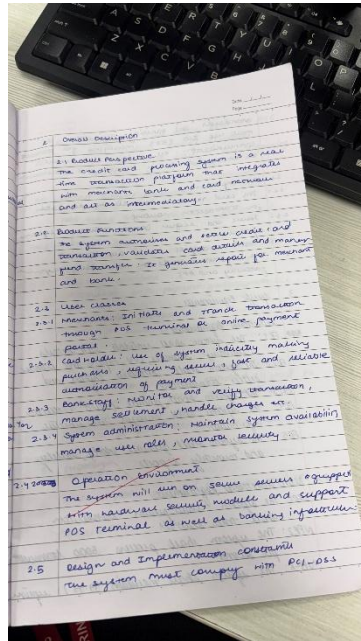 2 Overall Description
2.1 Product Perspective
The credit card processing system is a real
time transaction platform that integrates
with merchants bank and card network
and act as intermediatory.
2.2 Product Functions
The system authorises and settle credit card
transaction, validates card details and manage
fund transfer. It generates report for merchant
and bank.
2.3 User classes
2.3.1 Merchants: Initiate and track transaction
through POS terminal or online payment
portal.
2.3.2 Card Holder: use of system indirectly making
purchases, requiring secure, fast and reliable
authorisation of payment
2.3.3 Bank staff: Monitor and verify transaction,
manage settlement, handle charges etc.
2.3.4 System administration: Maintain system availability
manage user roles, monitor security.
2.4 Operation Environment
The system will run on secure servers equipped
with hardware security module and support
POS terminal as well as banking infrastructure
2.5 Design and Implementation constraints
The system must comply with PCI-DSS